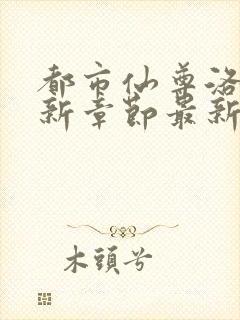 都市仙尊洛
新章節最新
木頭兮